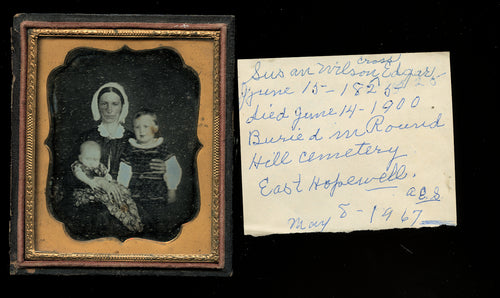 cross
Susan Wilson Edgar
June 15-1825
died June 14-1900.
Buried in Round
Hill Cemetery
East Hopewell.
a E.S
May 8-1967